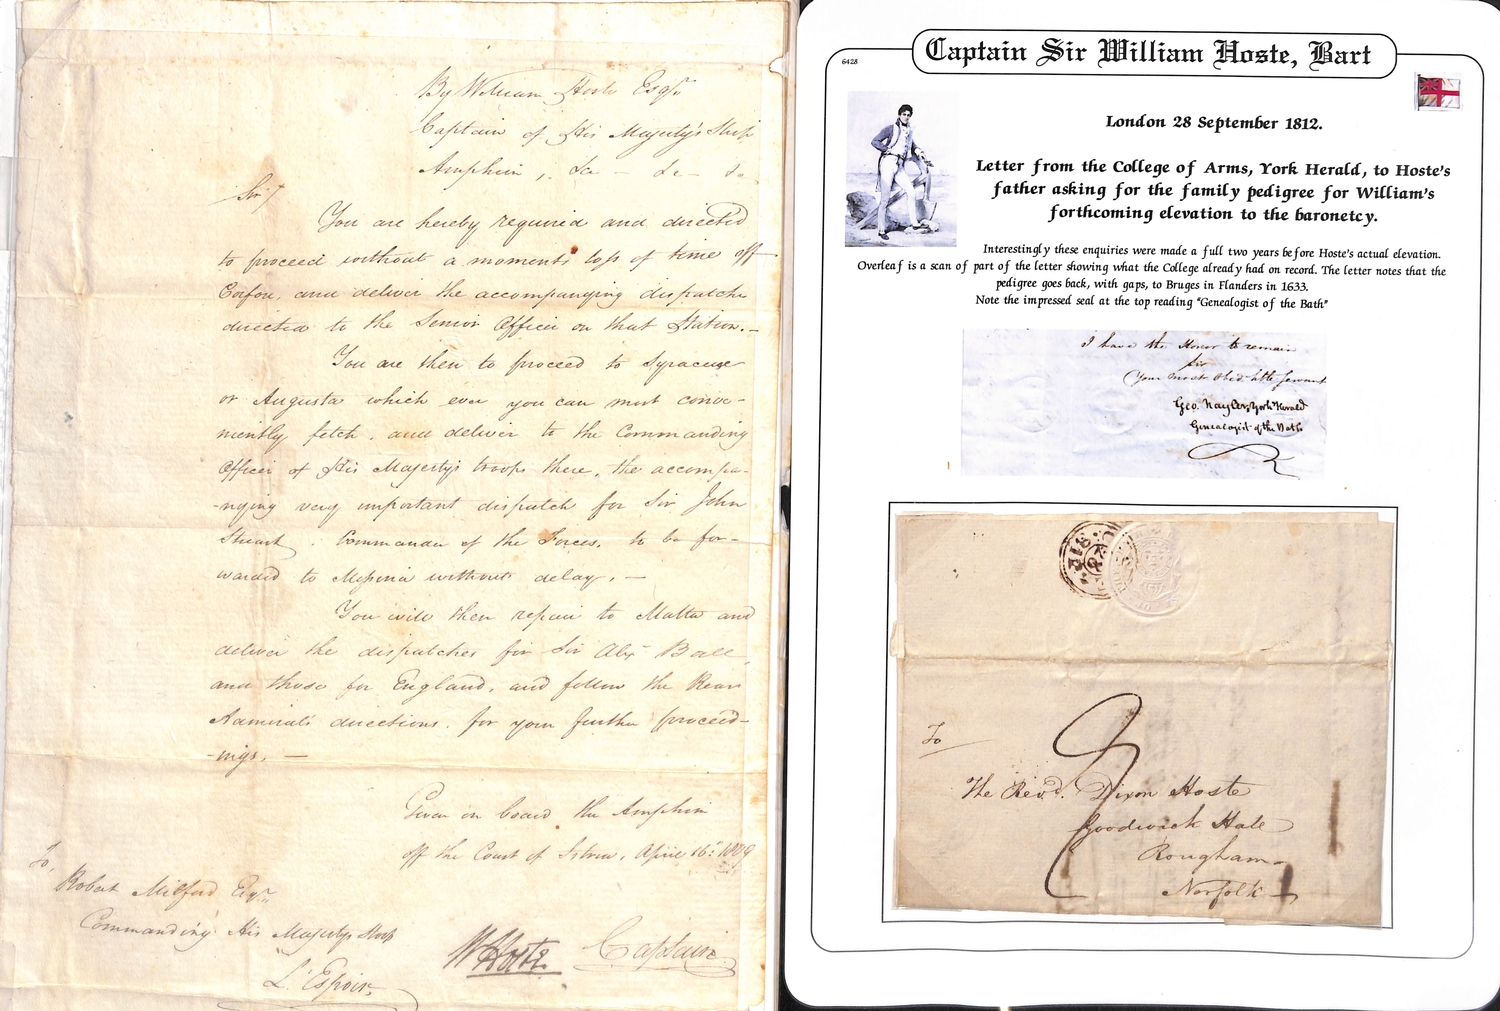 By William Hoste Esqr.
Captain of His Majesty's Ship
Amphion, &c - &c - &c
Sir/
You are hereby required and directed
to proceed without a moments loss of time off
Corfou, and deliver the accompanying dispatche
directed to the Senior Officer on that Station. -
You are then to proceed to Syracuse
or Augusta which ever you can most conve-
niently fetch, and deliver to the Commanding
Officer of His Majestys troops there, the accompa-
-nying very important dispatch for Sir John
Stuart, Commander of the Forces, to be for-
warded to Messina without delay, -
You will then repair to Malta and
deliver the dispatches for Sir Alexr Ball,
and those for England, and follow the Rear
Admirals directions for your further proceed-
-ings. -
Given on board the Amphion
off the Coast of Istria, April 16th 1809
To,
Robert Mitford Esqr.
Commanding His Majestys Sloop
L'Espoir,
WHoste Captain
Captain Sir William Hoste, Bart
6428
London 28 September 1812.
Letter from the College of Arms, York Herald, to Hoste's
father asking for the family pedigree for William's
forthcoming elevation to the baronetcy.
Interestingly these enquiries were made a full two years before Hoste's actual elevation.
Overleaf is a scan of part of the letter showing what the College already had on record. The letter notes that the
pedigree goes back, with gaps, to Bruges in Flanders in 1633.
Note the impressed seal at the top reading "Genealogist of the Bath"
I have the Honor to remain
Sir
Your most Obed. hble Servant
Geo. Nayler, York Herald
Genealogist of the Bath
To
The Revd. Dixon Hoste
Goodwick Hale
Rougham
Norfolk